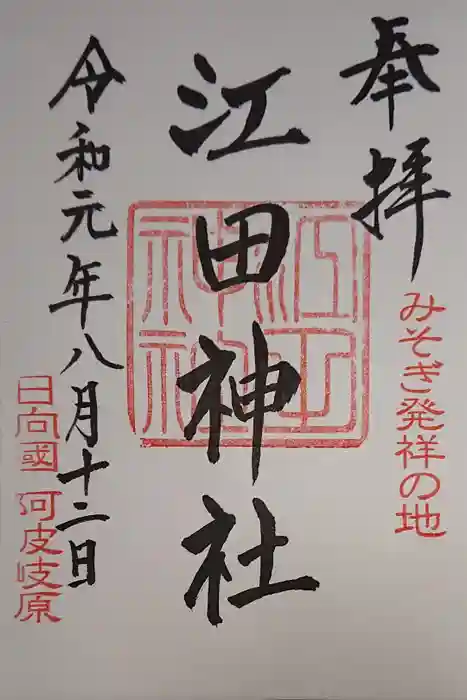 奉拝
みそぎ発祥の地
江田神社
江田神社
令和元年八月十二日
日向國 阿波岐原